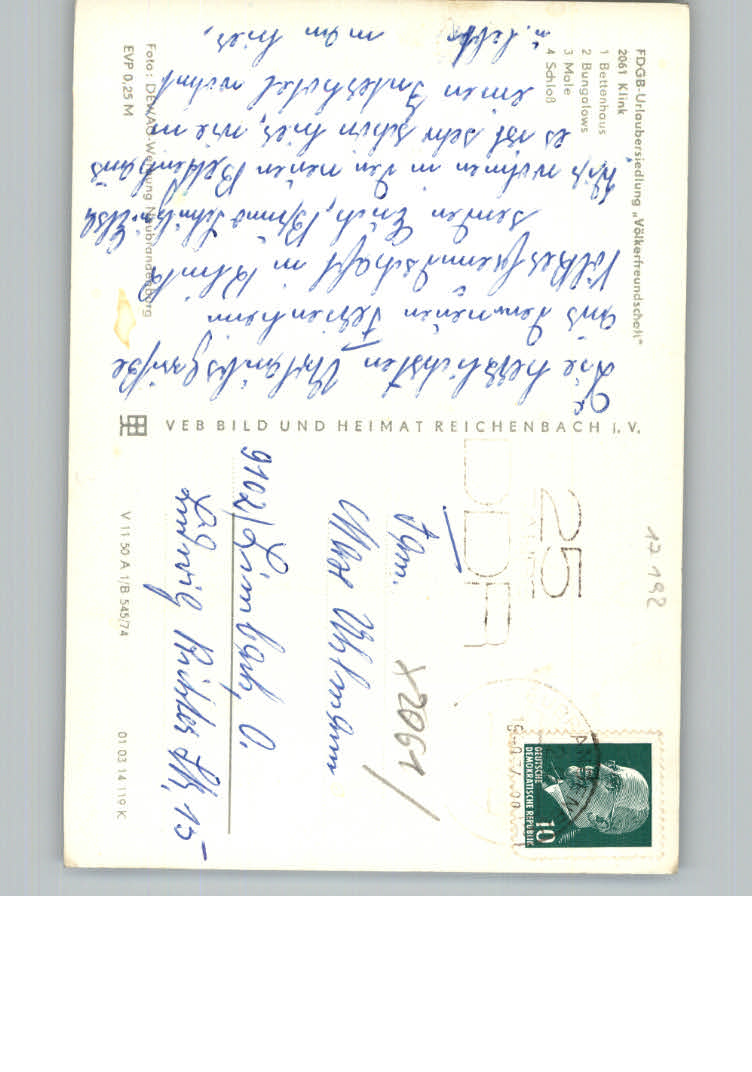 FDGB-Urlaubersiedlung „Völkerfreundschaft"
2061 Klink
1 Bettenhaus
2 Bungalows
3 Mole
4 Schloß
Die herzlichsten Urlaubsgrüße
aus dem neuen Ferienheim
Völkerfreundschaft in Klink
senden Erich,
Wir wohnen in den neuen Bettenhaus
es ist sehr schön hier, wie in
einen Interhotel wohnt
man hier,
Foto: DEWAG-Werbung Neubrandenburg
EVP 0,25 M
VEB BILD UND HEIMAT REICHENBACH i. V.
V 11 50 A 1/B 545/74
01 03 14 119 K
25
DDR
12 192
DEUTSCHE
DEMOKRATISCHE REPUBLIK
10
x2061/
Fam.
Max Uhlmann
9102/Limbach, O.
Ludwig Richter Str. 15